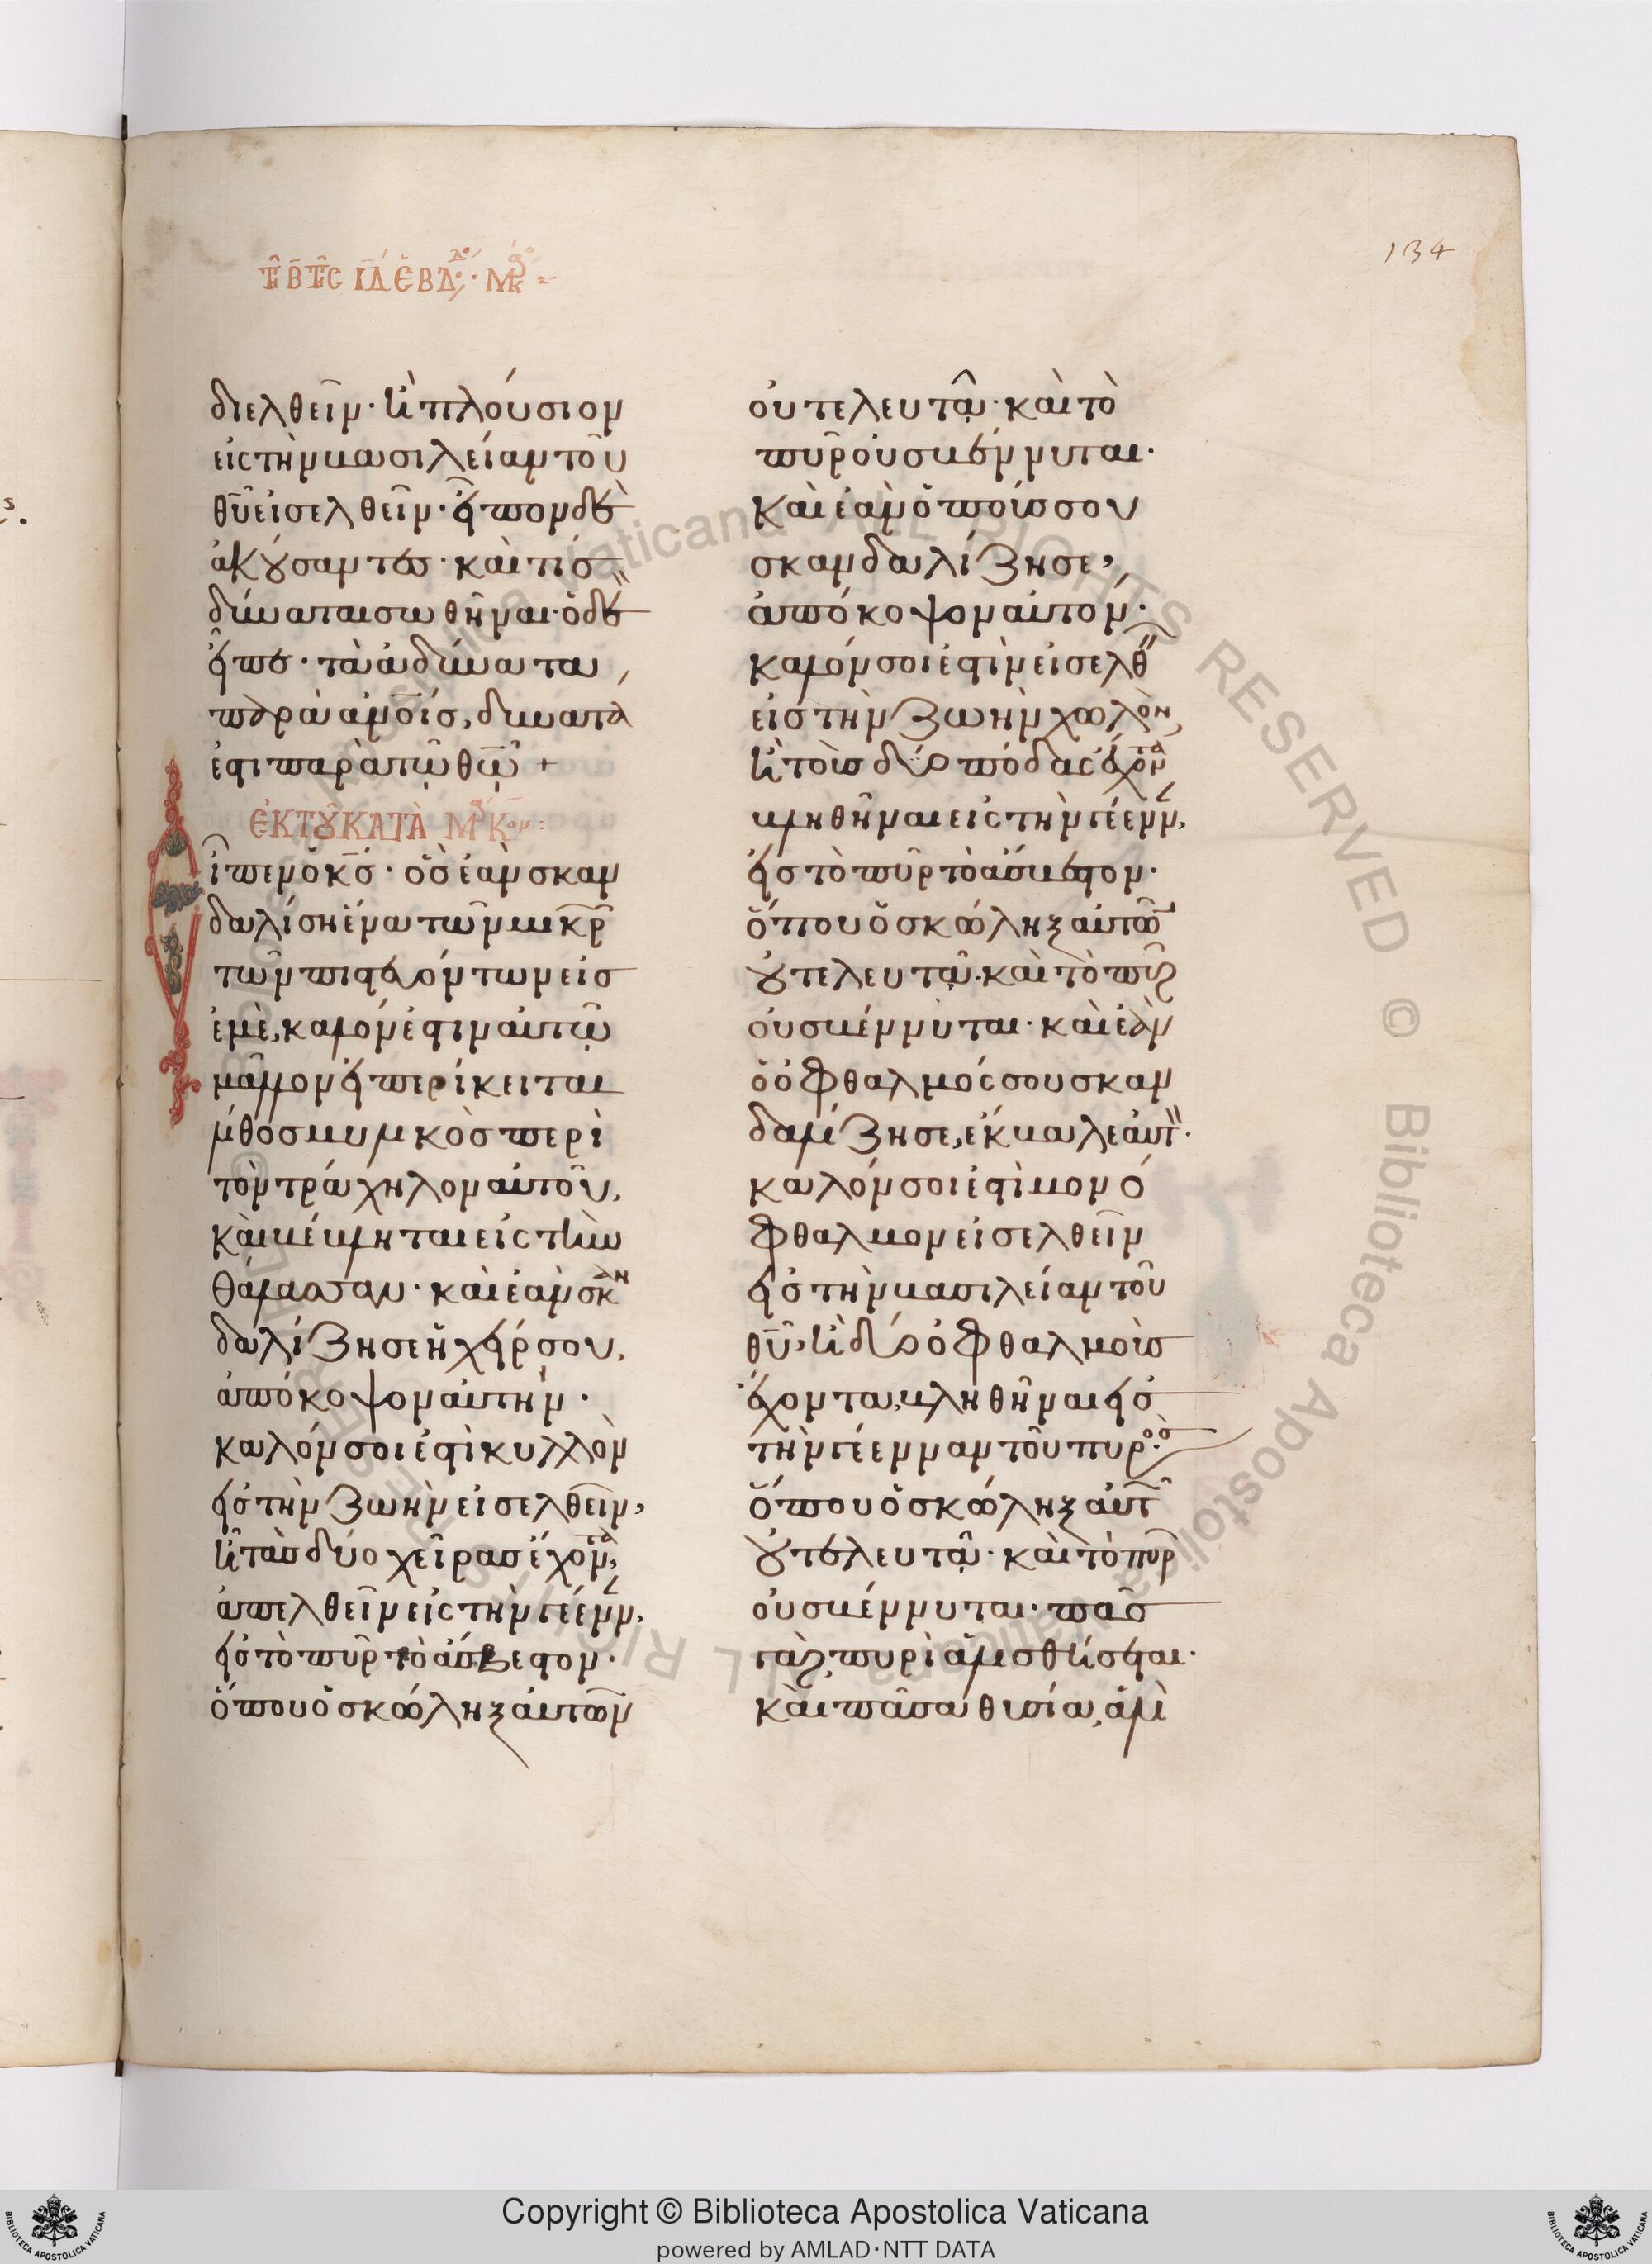 134
τῇ Β τῆς ΙΔ ἑβδ · Μρκ
διελθεῖν · ἢ πλούσιον
εἰς τὴν βασιλείαν τοῦ
θῦ εἰσελθεῖν · εἶπον δὲ
ἀκούσαντες · καὶ τίς
δύναται σωθῆναι · ὁ δὲ
εἶπε · τὰ ἀδύνατα
παρὰ ἀνοις, δυνατὰ
ἐστι παρὰ τῷ θῷ +
ἐκ τοῦ κατὰ Μρκον
Εἶπεν ὁ κς · ὃς ἐὰν σκαν
δαλίση ἕνα τῶν μικρ
τῶν πιστευόντων εἰς
ἐμὲ, καλόν ἐστιν αὐτῷ
μᾶλλον εἰ περίκειται
λίθος μυλικὸς περὶ
τὸν τράχηλον αὐτοῦ,
καὶ βέβληται εἰς τὴν
θάλασσαν · καὶ ἐὰν σκαν
δαλίζη σε ἡ χείρ σου,
ἀπόκοψον αὐτήν ·
καλόν σοι ἐστὶ κυλλὸν
εἰς τὴν ζωὴν εἰσελθεῖν,
ἢ τὰς δύο χεῖρας ἔχοντα,
ἀπελθεῖν εἰς τὴν γέενν,
εἰς τὸ πῦρ τὸ ἄσβεστον ·
ὅπου ὁ σκώληξ αὐτῶν
οὐ τελευτᾷ · καὶ τὸ
πῦρ οὐ σβέννυται ·
καὶ ἐὰν ὁ ποῦς σου
σκανδαλίζη σε,
ἀπόκοψον αὐτόν ·
καλόν σοι ἐστὶν εἰσελθ
εἰς τὴν ζωὴν χωλὸν,
ἢ τοὺς δύο πόδας ἔχοντα
βληθῆναι εἰς τὴν γέενν,
εἰς τὸ πῦρ τὸ ἄσβεστον ·
ὅπου ὁ σκώληξ αὐτῶ
οὐ τελευτᾷ · καὶ τὸ πῦρ
οὐ σβέννυται · καὶ ἐὰν
ὁ ὀφθαλμός σου σκαν
δαλίζη σε, ἔκβαλε αὐτ ·
καλόν σοι ἐστὶ μονό
φθαλμον εἰσελθεῖν
εἰς τὴν βασιλείαν τοῦ
θῦ, ἢ δύο ὀφθαλμοὺς
ἔχοντα, βληθῆναι εἰς
τὴν γέενναν τοῦ πυρός ·
ὅπου ὁ σκώληξ αὐτ
οὐ τελευτᾷ · καὶ τὸ πῦρ
οὐ σβέννυται · πᾶς
γὰρ πυρὶ ἁλισθήσεται ·
καὶ πᾶσα θυσία, ἁλὶ
Copyright © Biblioteca Apostolica Vaticana
powered by AMLAD·NTT DATA